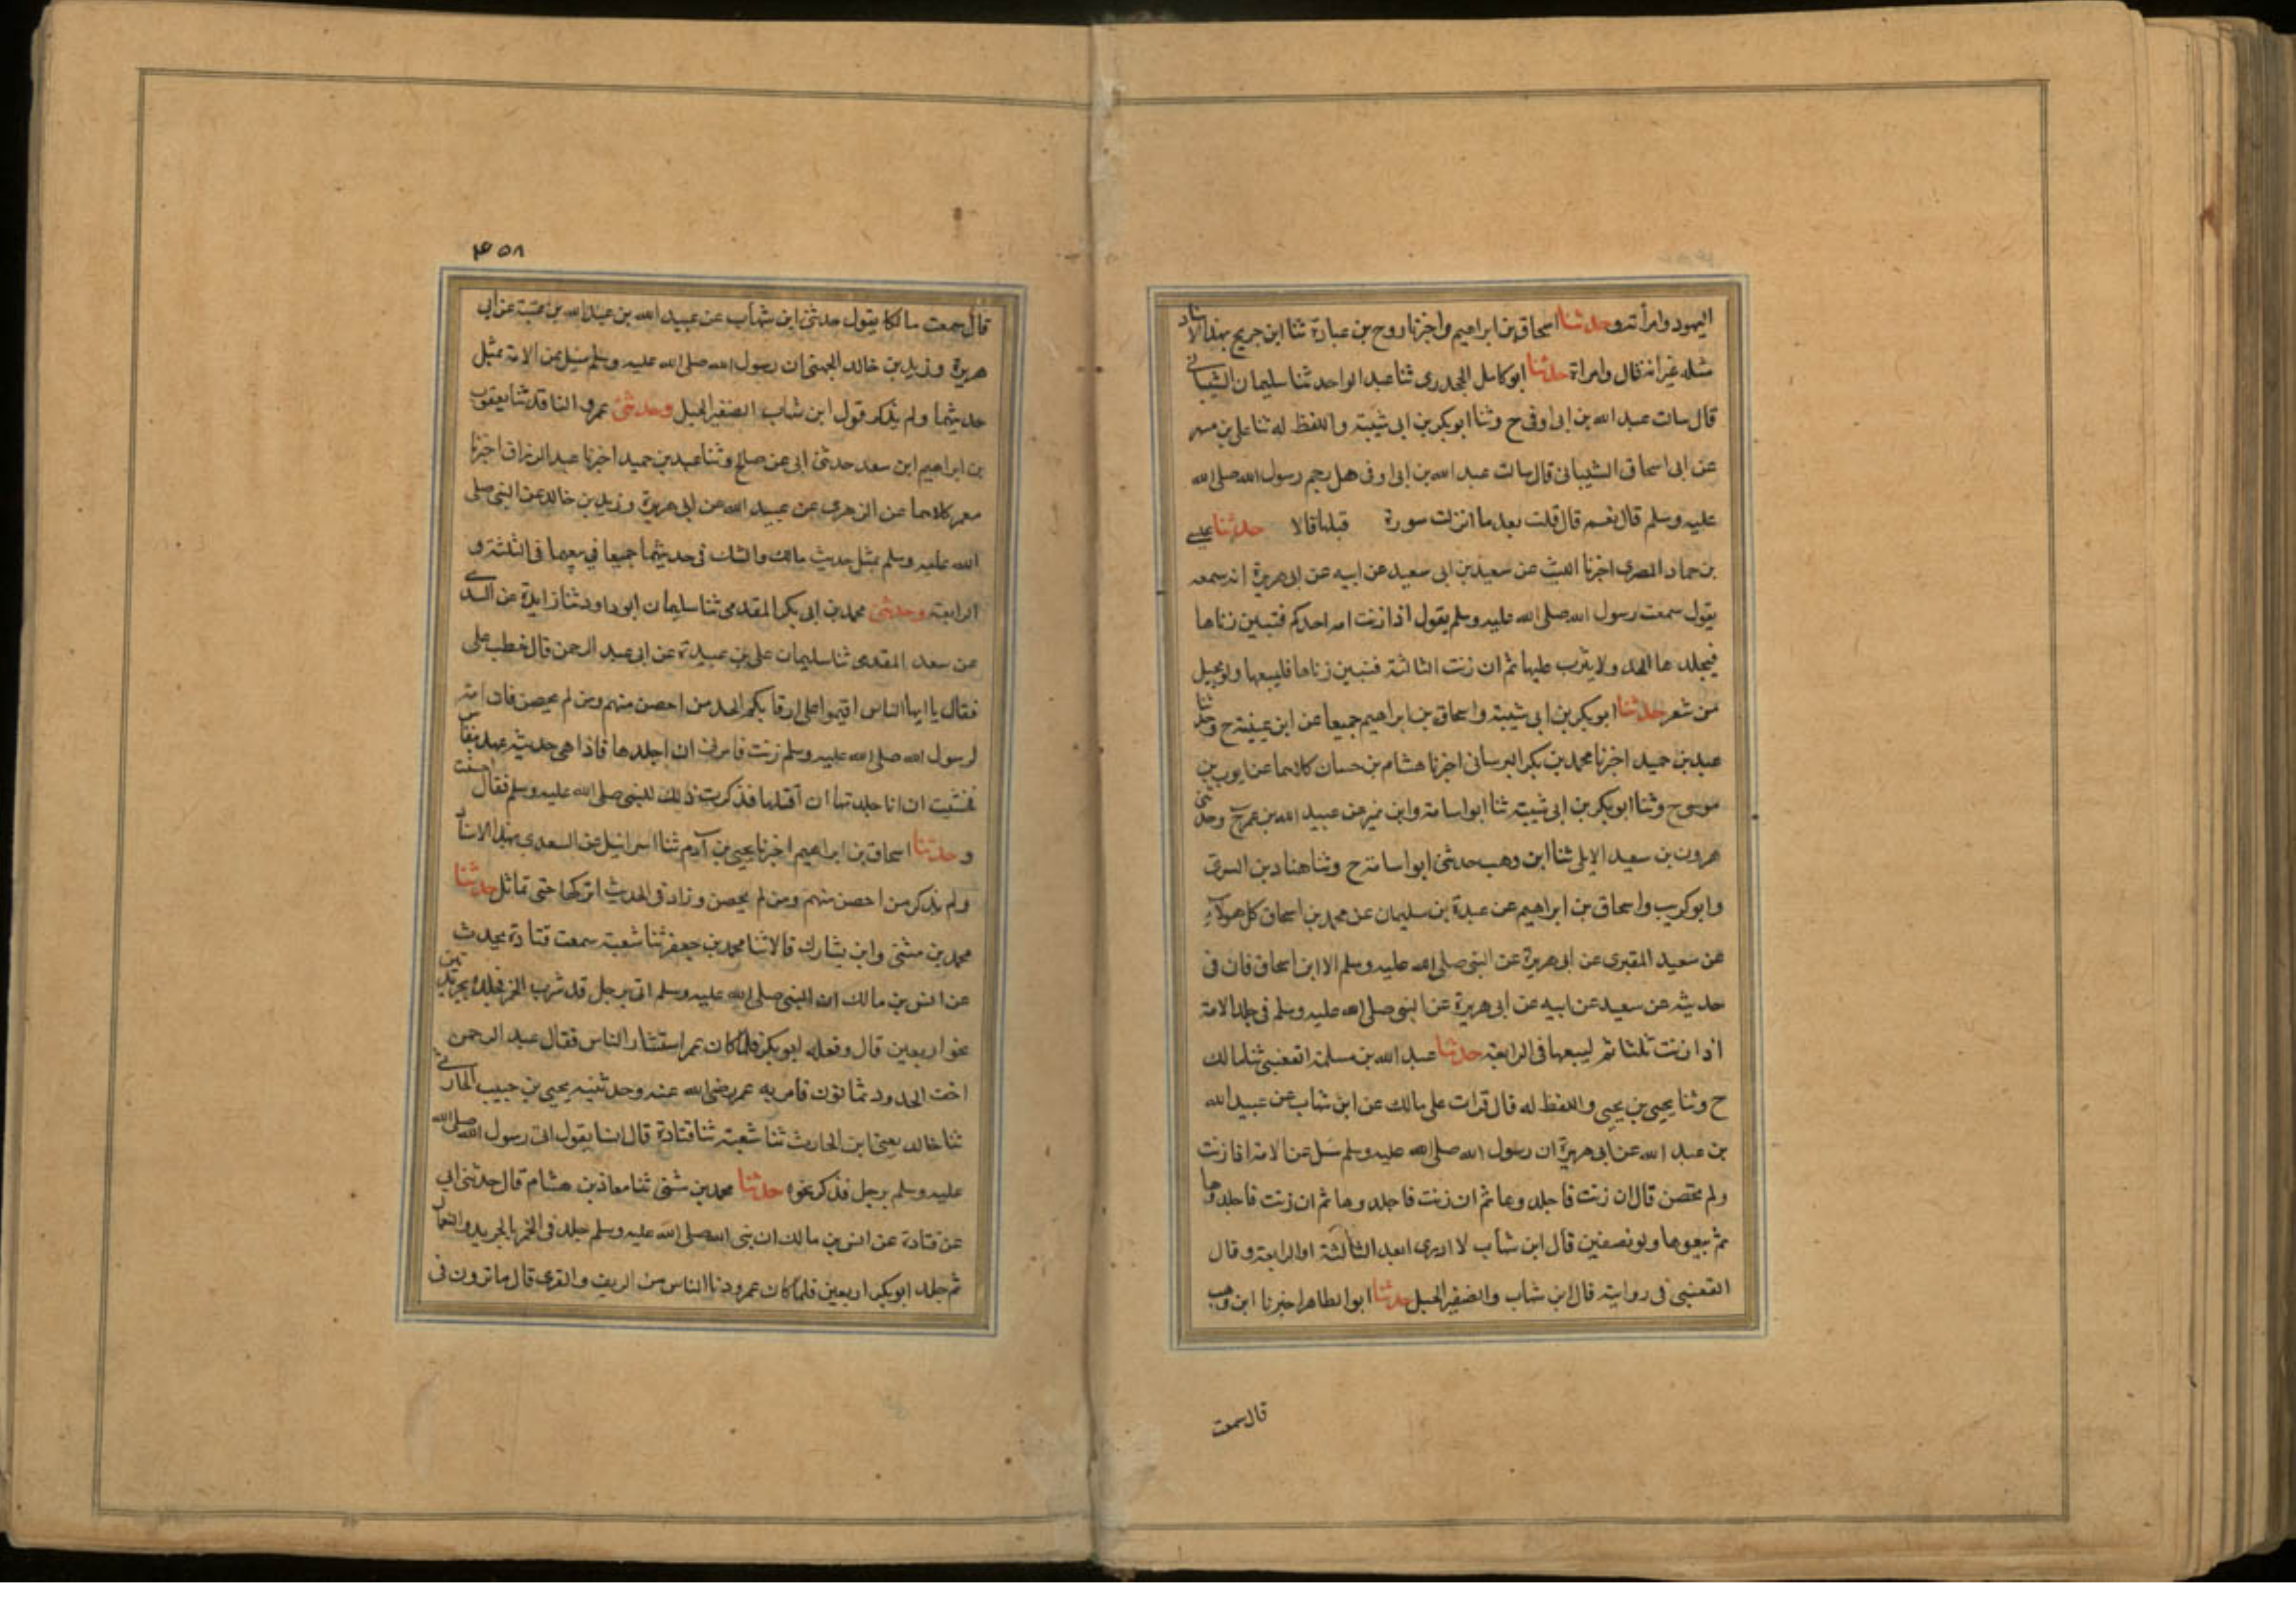 اليهود وامرأته وحدثنا اسحاق بن ابراهيم واخبرنا روح بن عبادة ثنا ابن جريج بهذا الاسناد
مثله غير انه قال وامراة حدثنا ابو كامل الجحدرى ثنا عبد الواحد ثنا سليمان الشيبانى
قال سات عبد الله بن ابى اوفى ح وثنا ابو بكر بن ابى شيبة واللفظ له ثنا على بن مسهر
عن ابى اسحاق الشيبانى قال سات عبد الله بن ابى اوفى هل رجم رسول الله صلى الله
عليه وسلم قال نعم قال قلت بعد ما انزلت سورة قبلها قالا حدثنا عيسى
بن حماد المصرى اخبرنا الليث عن سعيد بن ابى سعيد عن ابيه عن ابى هريرة انه سمعه
يقول سمعت رسول الله صلى الله عليه وسلم يقول اذا زنت امه احدكم فتبين زناها
فيجلدها الحد ولا يثرب عليها ثم ان زنت الثالثة فتبين زناها فليبعها ولو بحبل
من شعر حدثنا ابو بكر بن ابى شيبة واسحاق بن ابراهيم جميعا عن ابن عيينة ح وحدثنا
عبد بن حميد اخبرنا محمد بن بكر البرسانى اخبرنا هشام بن حسان كلاهما عن ايوب بن
موسى ح وثنا ابو بكر بن ابى شيبة ثنا ابو اسامة وابن نمير عن عبيد الله بن عمر ح وحدثنى
هرون بن سعيد الايلى ثنا ابن وهب حدثنى ابو اسامة ح وثنا هناد بن السرى
وابو كريب واسحاق بن ابراهيم عن عبدة بن سليمان عن محمد بن اسحاق كل هولاء
عن سعيد المقبرى عن ابى هريرة عن النبى صلى الله عليه وسلم الا ابن اسحاق فان فى
حديثه عن سعيد عن ابيه عن ابى هريرة عن النبى صلى الله عليه وسلم فى جلد الامة
اذا زنت ثلثا ثم ليبعها فى الرابعة حدثنا عبد الله بن مسلمة القعنبى ثنا مالك
ح وثنا يحيى بن يحيى واللفظ له قال قرات على مالك عن ابن شهاب عن عبيد الله
بن عبد الله عن ابى هريرة ان رسول الله صلى الله عليه وسلم سئل عن الامة اذا زنت
ولم تحصن قال ان زنت فاجلدوها ثم ان زنت فاجلدوها ثم ان زنت فاجلدوها
ثم بيعوها ولو بضفير قال ابن شهاب لا ادرى ابعد الثالثة او الرابعة وقال
القعنبى فى روايته قال ابن شهاب والضفير الحبل حدثنا ابو الطاهر اخبرنا ابن وهب
قال سمعت
۴۵۸
قال سمعت مالكا يقول حدثنى ابن شهاب عن عبيد الله بن عبد الله بن عتبة عن ابى
هريرة وزيد بن خالد الجهنى ان رسول الله صلى الله عليه وسلم سئل عن الامة بمثل
حديثهما ولم يذكر قول ابن شهاب الضفير الحبل وحدثنى عمرو الناقد ثنا يعقوب
بن ابراهيم ابن سعد حدثنى ابى عن صالح وثنا عبد بن حميد اخبرنا عبد الرزاق اخبرنا
معمر كلاهما عن الزهرى عن عبيد الله عن ابى هريرة وزيد بن خالد عن النبى صلى
الله عليه وسلم بمثل حديث مالك والشك فى حديثهما جميعا فى بيعها فى الثلثة و
الرابعة وحدثنى محمد بن ابى بكر المقدمى ثنا سليمان ابو داود ثنا زايدة عن السدى
عن سعد المقدمى ثنا سليمان على بن عبيدة عن ابى عبد الرحمن قال خطب على
فقال يا ايها الناس اقيموا على ارقايكم الحد من احصن منهم ومن لم يحصن فان امة
لرسول الله صلى الله عليه وسلم زنت فامرنى ان اجلدها فاذا هى حديث عهد بنفاس
فخشيت ان انا جلدتها ان اقتلها فذكرت ذلك للنبى صلى الله عليه وسلم فقال احسنت
وحدثنا اسحاق بن ابراهيم اخبرنا يحيى بن آدم ثنا اسرائيل عن السعدى بهذا الاسناد
ولم يذكر من احصن منهم ومن لم يحصن وزاد فى الحديث اتركها حتى تماثل حدثنا
محمد بن مثنى وابن بشارك قالا ثنا محمد بن جعفر ثنا شعبة سمعت قتادة يحدث
عن انس بن مالك ان النبى صلى الله عليه وسلم اتى برجل قد شرب الخمر فجلده بجريدتين
نحو اربعين قال وفعله ابو بكر فلما كان عمر استشار الناس فقال عبد الرحمن
اخف الحدود ثمانون فامر به عمر رضى الله عنه وحدثنيه يحيى بن حبيب الحارثى
ثنا خالد يعنى ابن الحارث ثنا شعبة ثنا قتادة قال انسا يقول اتى رسول الله صلى الله
عليه وسلم برجل فذكر نحوه حدثنا محمد بن مثنى ثنا معاذ بن هشام قال حدثنى ابى
عن قتادة عن انس بن مالك ان نبى الله صلى الله عليه وسلم جلد فى الخمر بالجريد والنعال
ثم جلد ابو بكر اربعين فلما كان عمر ودنا الناس من الريف والقرى قال ما ترون فى